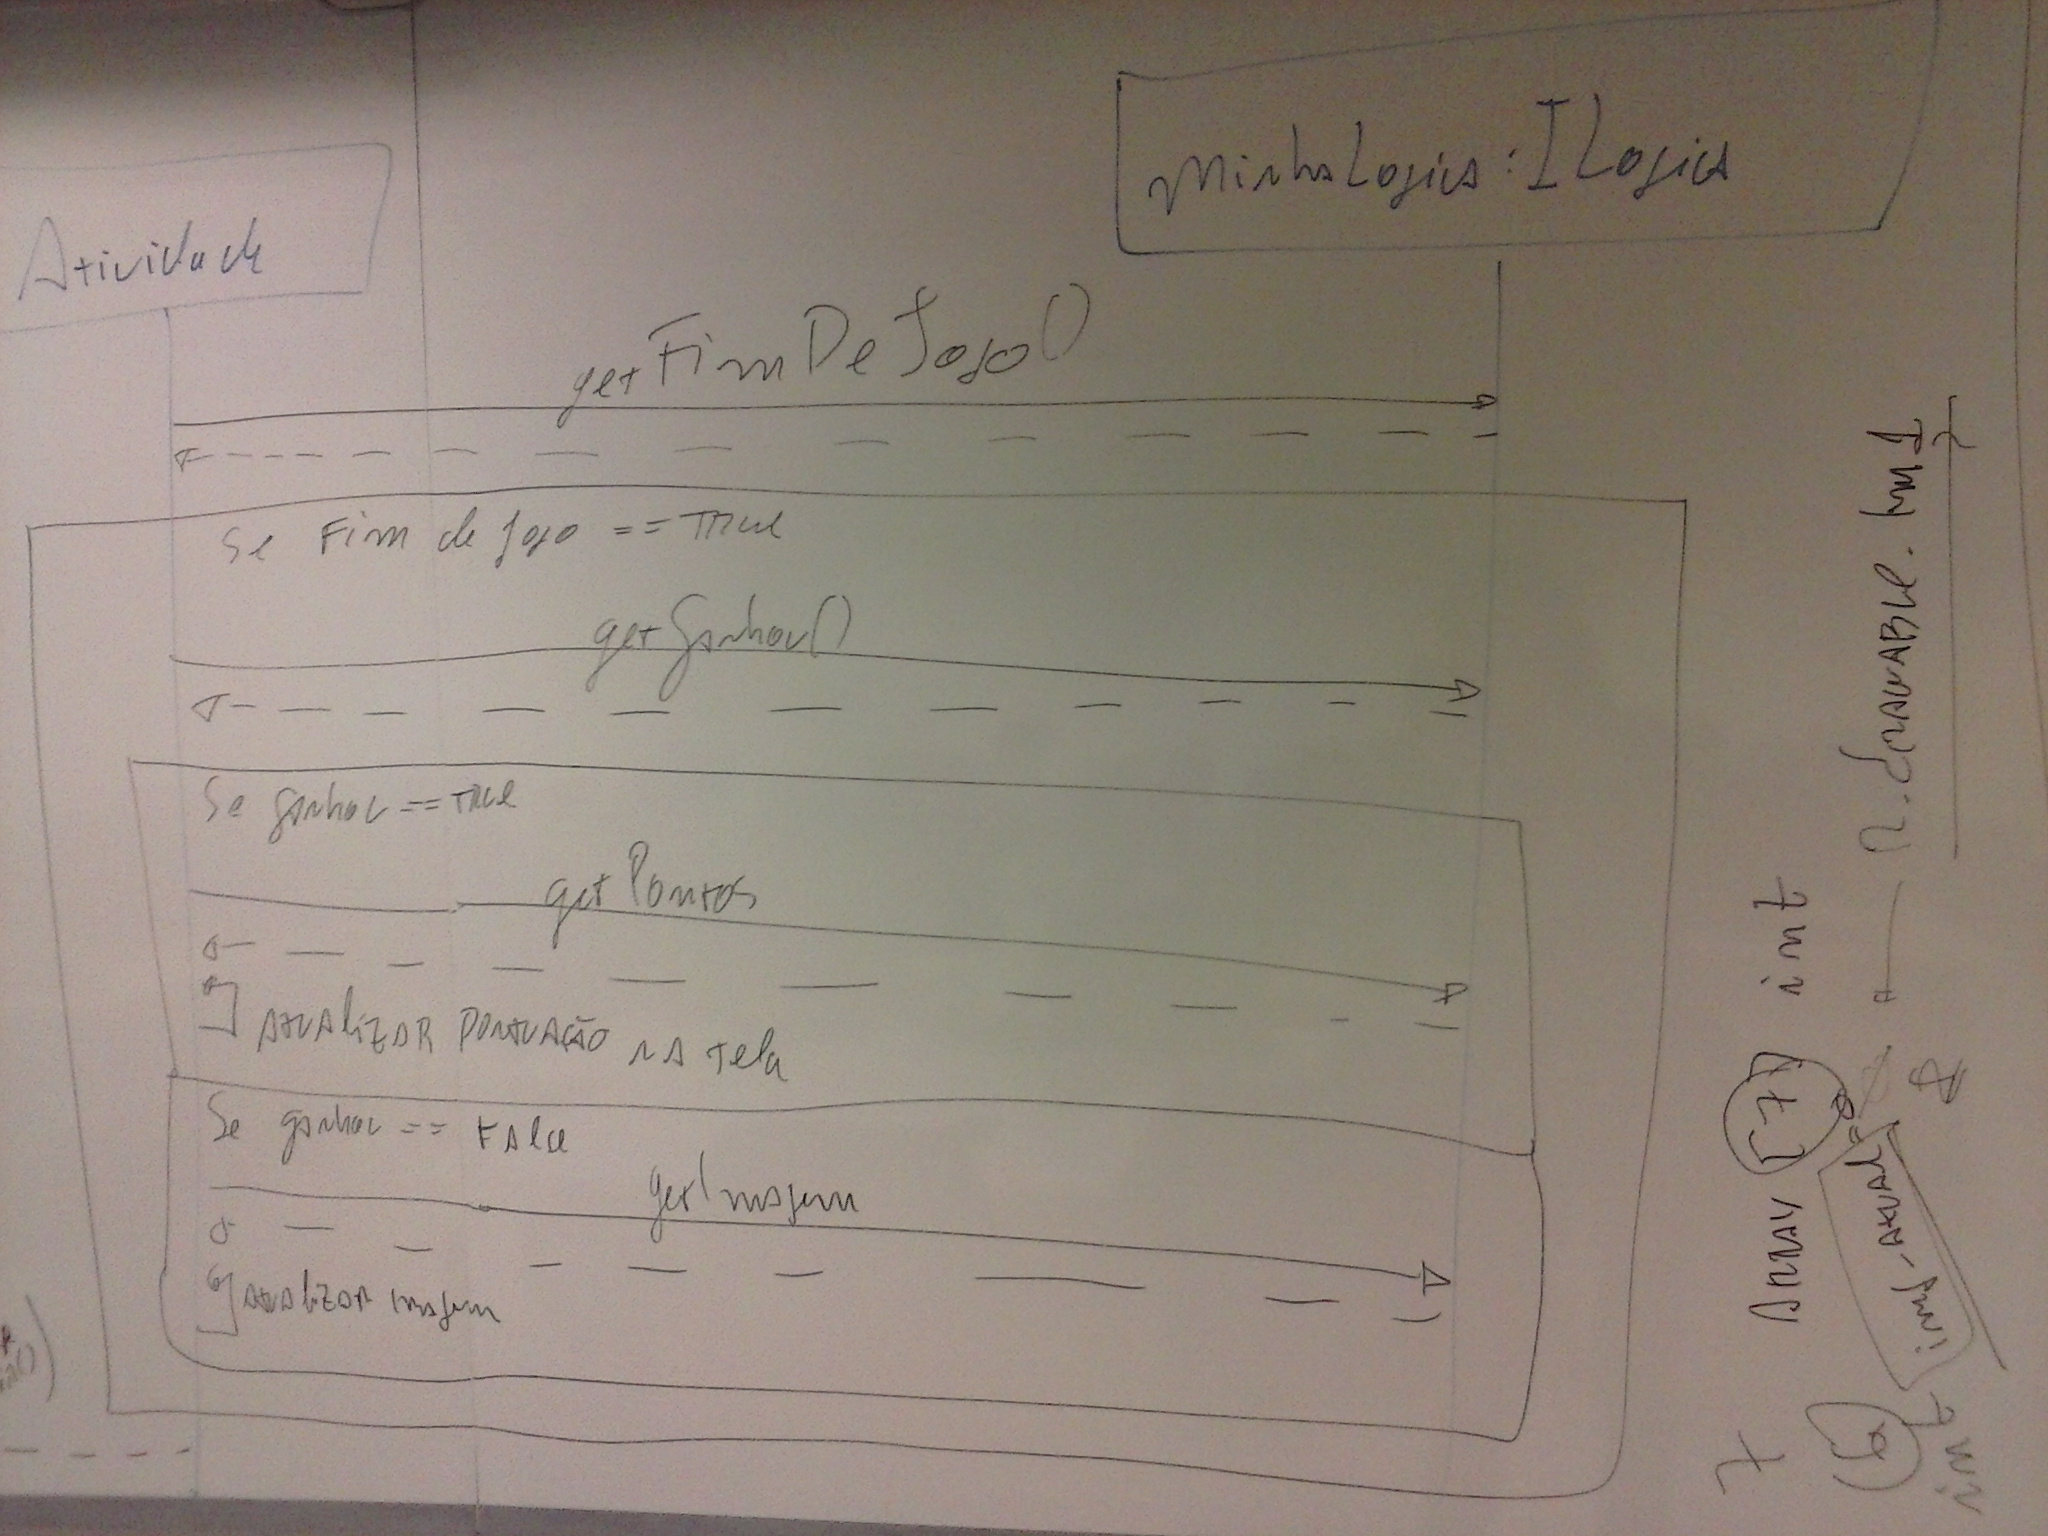 Atividade
minhaLogica : ILogica
getFimDeJogo()
Se Fim de Jogo == True
getGanhou()
Se ganhou == True
getPontos
Atualizar pontuação na tela
Se ganhou == False
getImagem
Atualizar imagem
Array [7] int
img_Atual
int